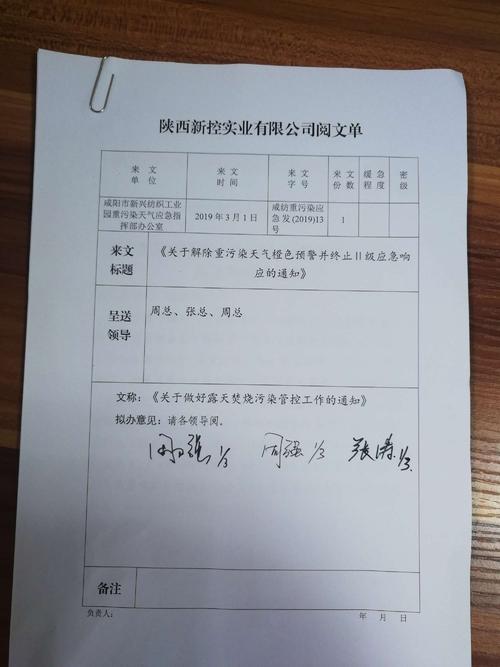 陕西新控实业有限公司阅文单
来文单位
来文时间
来文字号
来文份数
缓急程度
密级
咸阳市新兴纺织工业
园重污染天气应急指
挥部办公室
2019年3月1日
咸纺重污染应
急发(2019)13
号
1
来文标题
《关于解除重污染天气橙色预警并终止Ⅱ级应急响
应的通知》
呈送领导
周总、张总、周总
文称:《关于做好露天焚烧污染管控工作的通知》
拟办意见:请各领导阅。
1/3 周强 1/3 张涛 1/3
备注
负责人: 年 月 日